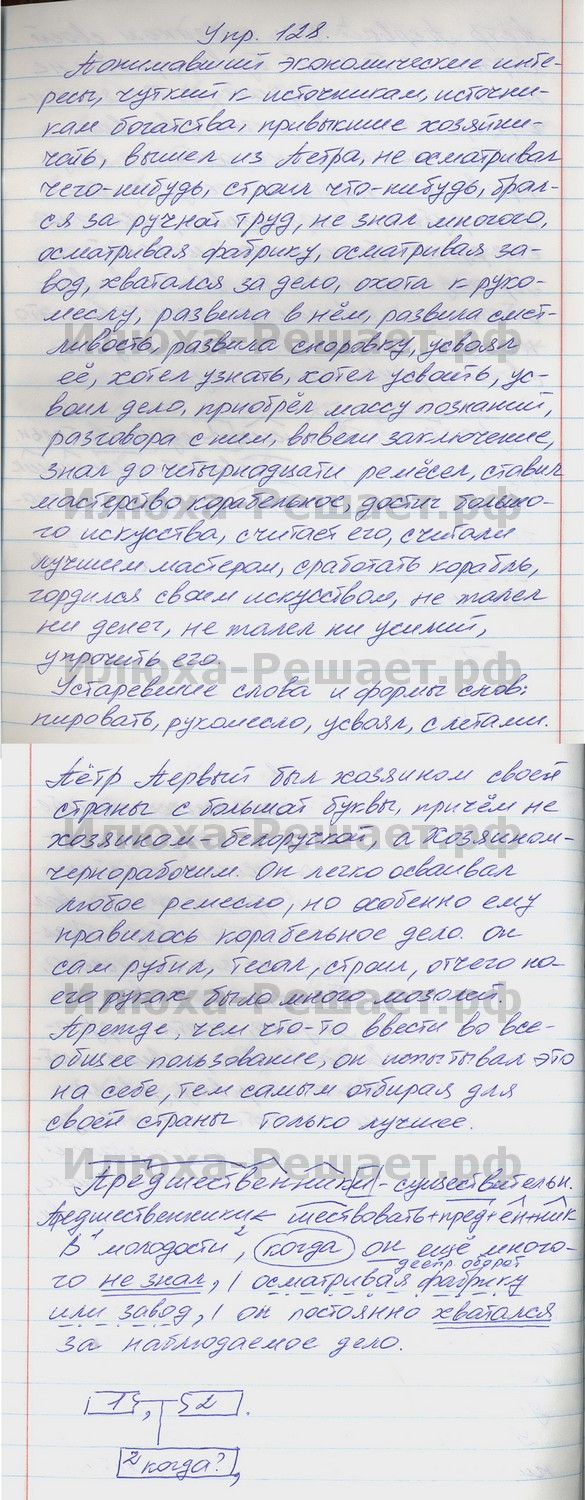 Упр. 128.
Понимавший экономические инте-
ресы, чуткий к источникам, источни-
кам богатства, привыкшие хозяйни-
чать, вышел из Петра, не осматривал
чего-нибудь, строил что-нибудь, брал-
ся за ручной труд, не знал многого,
осматривая фабрику, осматривая за-
вод, хватался за дело, охота к руко-
меслу, развила в нём, развила смет-
ливость, развила сноровку, усвоял
её, хотел узнать, хотел усвоить, ус-
воил дело, приобрёл массу познаний,
разговора с ним, вывели заключение,
знал до четырнадцати ремёсел, ставил
мастерство корабельное, достиг больно-
го искусства, считает его, считали
лучшим мастером, сработать корабль,
гордился своим искусством, не жалел
ни денег, не жалел ни усилий,
упрочить его.
Устаревшие слова и формы слов:
пировать, рукомесло, усвоял, с летами.
Пётр Первый был хозяином своей
страны с большой буквы, причём не
хозяином-белоручкой, а Хозяином-
чернорабочим. Он легко осваивал
любое ремесло, но особенно ему
нравилось корабельное дело. Он
сам рубил, тесал, строил, отчего на
его руках было много мозолей.
Прежде, чем что-то ввести во все-
общее пользование, он испытывал это
на себе, тем самым отбирая для
своей страны только лучшее.
Предшественники - существительн.
Предшественники < шествовать+пред+ен+ник
В 1 молодости 2, (когда) он ещё много-
деепр. оборот
го не знал, | осматривая фабрику
или завод, | он постоянно хватался
за наблюдаемое дело.
1 , 2 .
2 когда? ,
Илюха-Решает.рф
Илюха-Решает.рф
Илюха-Решает.рф
Илюха-Решает.рф
Илюха-Решает.рф
Илюха-Решает.рф